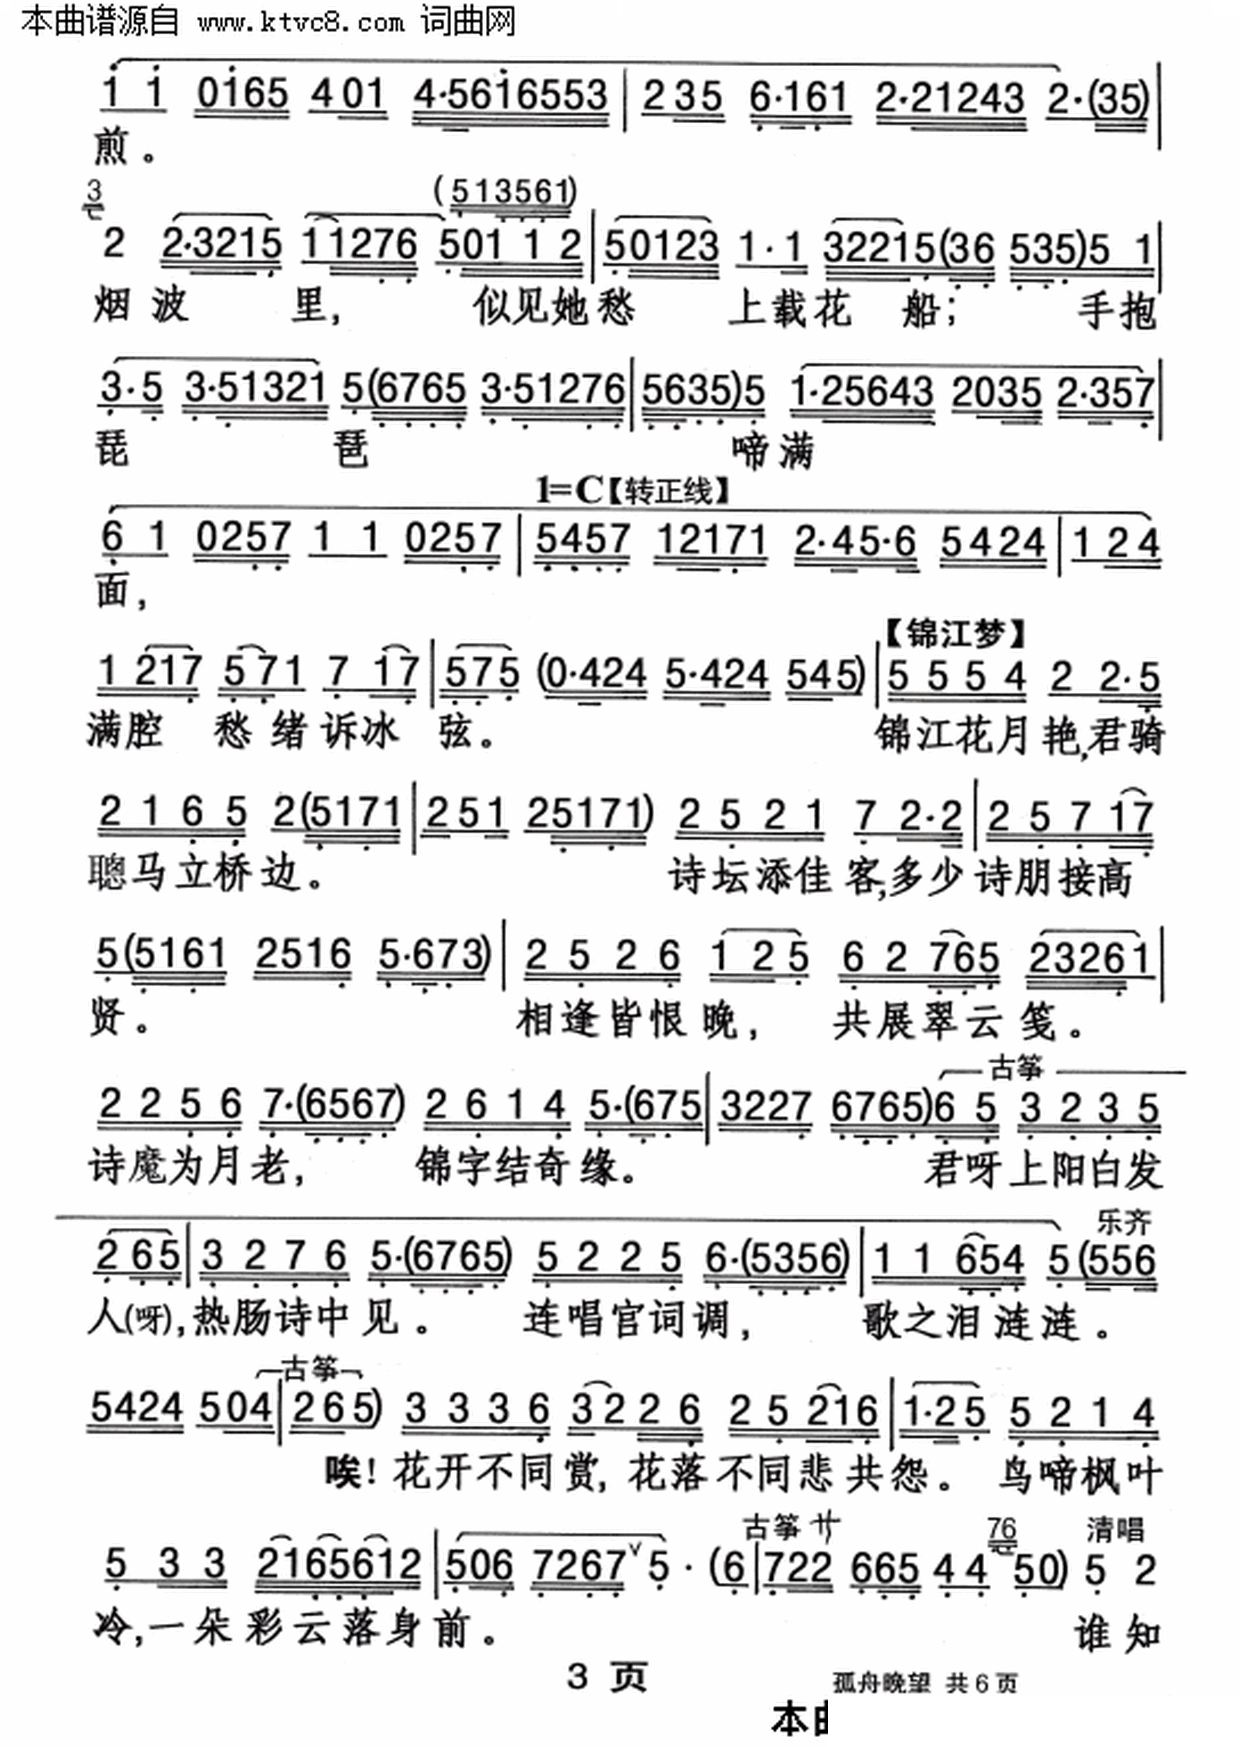 本曲谱源自 www.ktvc8.com 词曲网
1 1 0165 401 4·56i6553 | 235 6·161 2·21243 2·(35) |
煎。
3
(513561)
2 2·3215 11276 501 1 2 | 50123 1·1 32215(36 535)5 1 |
烟波 里, 似见她愁 上载花 船; 手抱
3·5 3·51321 5(6765 3·51276 | 5635)5 1·25643 2035 2·357 |
琵 琶 啼满
1=C【转正线】
6 1 0257 1 1 0257 | 5457 12171 2·45·6 5424 | 124
面,
【锦江梦】
1 217 571 7 17 | 575 (0·424 5·424 545) | 5554 2 2·5
满腔 愁绪诉冰 弦。 锦江花月艳,君骑
2165 2(5171 | 251 25171) 2521 7 2·2 | 25717
聰马立桥边。 诗坛添佳客,多少诗朋接高
5(5161 2516 5·673) | 2526 125 62765 23261 |
贤。 相逢皆恨晚, 共展翠云笺。
古筝
2256 7·(6567) 2614 5·(675 | 3227 6765)65 3235
诗魔为月老, 锦字结奇缘。 君呀上阳白发
乐齐
265 | 3276 5·(6765) 5225 6·(5356) | 11654 5(556
人(呀),热肠诗中见。 连唱宫词调, 歌之泪涟涟。
古筝
5424 504 | 265) 3336 3226 25216 | 1·25 5214
唉! 花开不同赏, 花落不同悲共怨。 鸟啼枫叶
古筝 サ 76 清唱
5 33 2165612 | 506 7267ˇ5· (6 | 722 665 44 50) 5 2
冷,一朵彩云落身前。 谁知
3 页
孤舟晚望 共6页
本曲